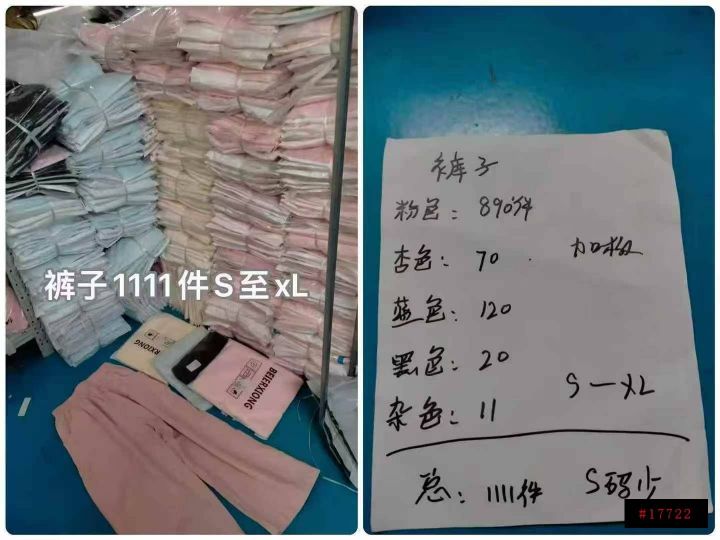 裤子1111件S至xL
BEIERXIONG
RXIONG
裤子
粉色：890件
杏色：70
蓝色：120
黑色：20
杂色：11
S—XL
总：1111件 S码少
#17722